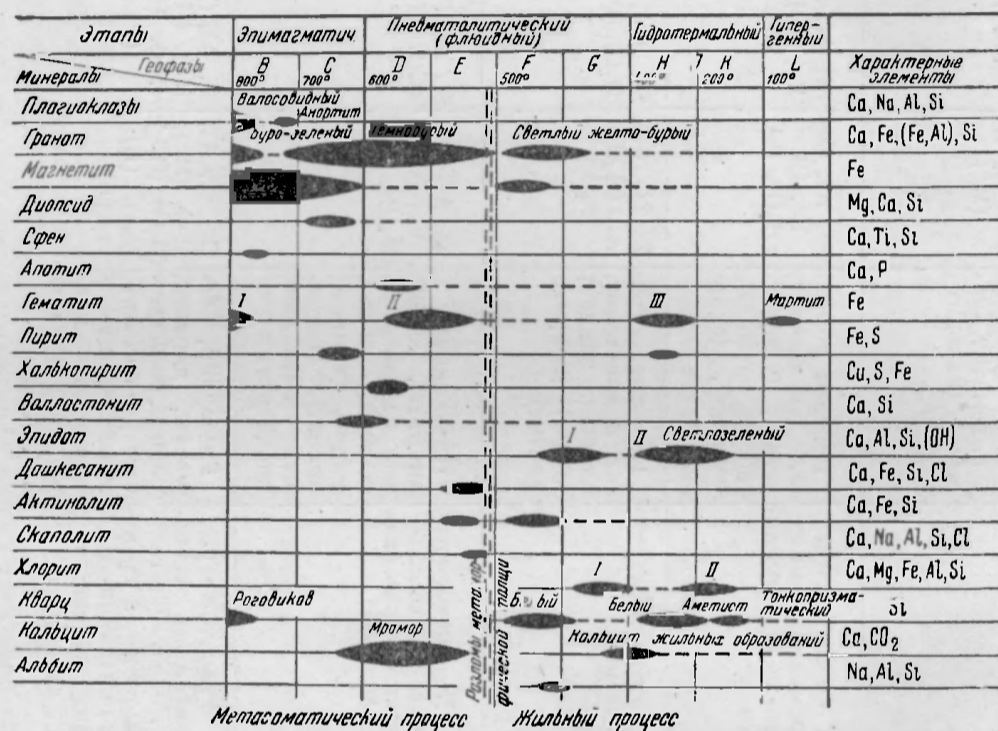 Этапы Эпимагматич. Пневматолитический (флюидный) Гидротермальный Гипергенный
Геофазы B C D E F G H K L Характерные элементы
Минералы 800° 700° 600° 500° 200° 100°
Волосовидный
Плагиоклазы Анортит Ca, Na, Al, Si
Буро-зеленый Темнобурый Светлый желто-бурый
Гранат Ca, Fe, (Fe, Al), Si
Магнетит Fe
Диопсид Mg, Ca, Si
Сфен Ca, Ti, Si
Апатит Ca, P
Гематит I II III Мартит Fe
Пирит Fe, S
Халькопирит Cu, S, Fe
Волластонит Ca, Si
Эпидот I II Светлозеленый Ca, Al, Si, (OH)
Дашкесанит Ca, Fe, Si, Cl
Актинолит Ca, Fe, Si
Скаполит Ca, Na, Al, Si, Cl
Хлорит I II Ca, Mg, Fe, Al, Si
Кварц Роговиков Белый Аметист Тонкопризматический Si
Кальцит Мрамор Кальцит жильных образований Ca, CO2
Альбит Na, Al, Si
Разломы
толщи
Метасоматический процесс Жильный процесс